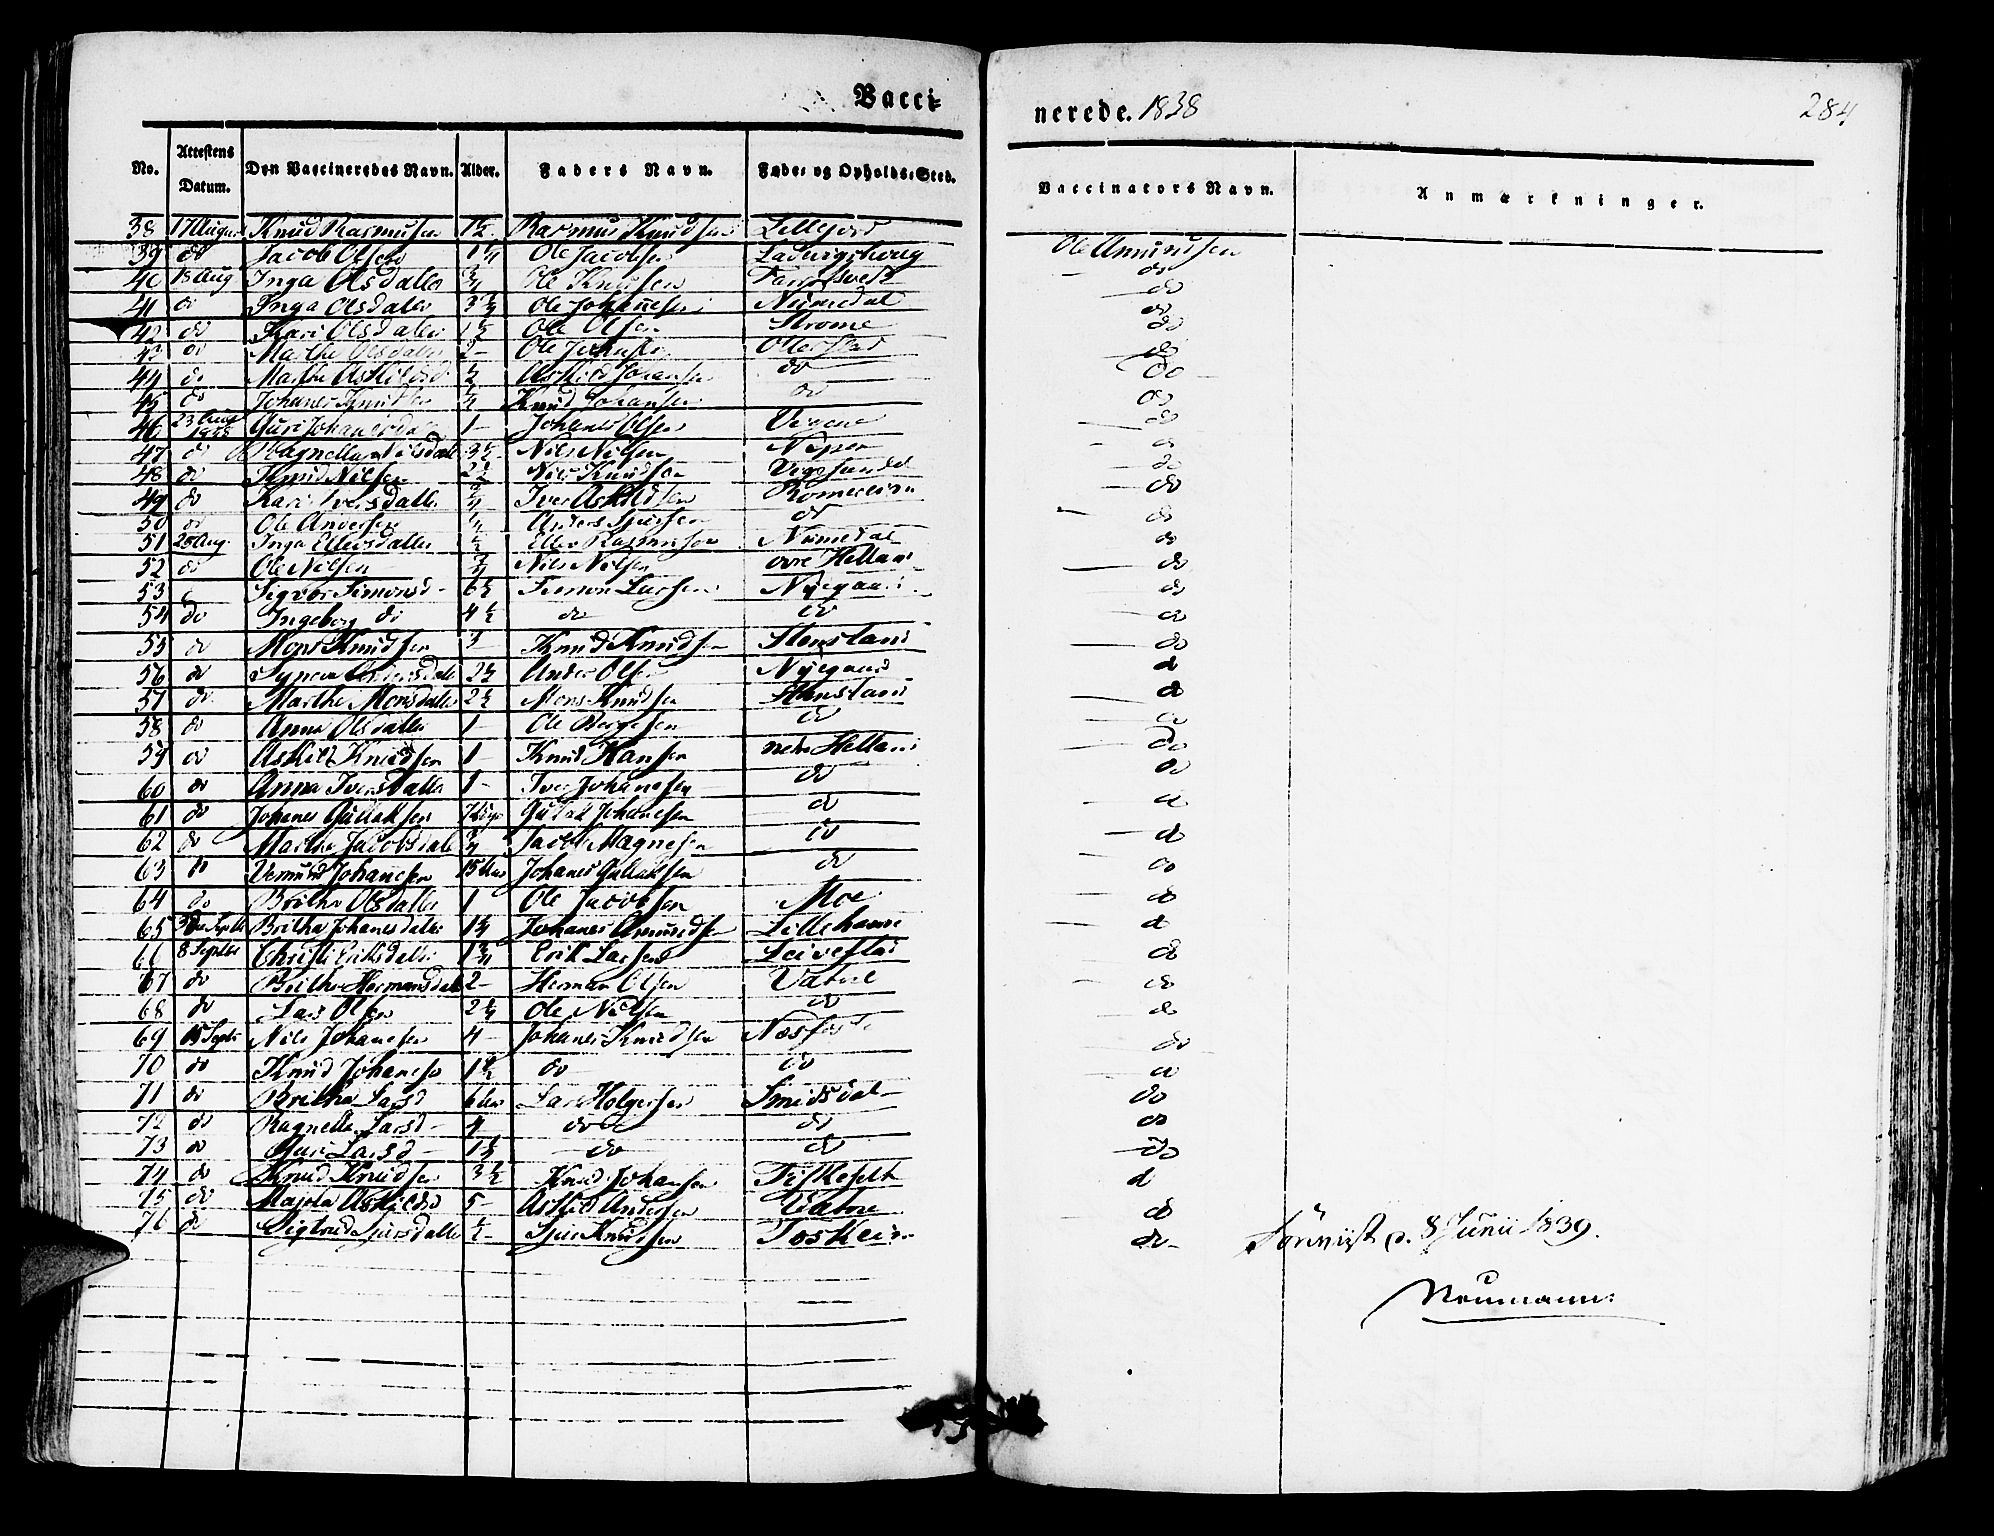 Vacci-
nerede. 1838
284
No. Attestens Datum. Den Vaccineredes Navn. Alder. Faders Navn. Føde- og Opholds-Sted. Vaccinators Navn. Anmærkninger.
38 17 August Knud Rasmussen 1½ Rasmus Knudsen Lillejord Ole Amundsen
39 do Jacob Olsen 1¼ Ole Jacobsen Ladvigshoug do
40 18 Aug Inga Olsdatter ¾ Ole Knudsen do
41 do Inga Olsdatter Ole Johannesen Numedal do
42 do Kari Olsdatter 1½ Ole Olsen Strøme do
43 do Marthe Olsdatter 2 - Ole Johansen Otterstad do
44 do Marthe Askildsd ½ Askild Johansen do do
45 do Johanes Knudsen Knud Johansen do do
46 23 Aug 1838 Guri Johanesdatter 1 - Johanes Olsen do
47 do Ragnella Nilsdatt 3½ Nils Nilsen do
48 do Knud Nilsen 2½ Nils Knudsen do
49 do Kari Iversdatter ¾ Iver Askildsen Romereim do
50 do Ole Andersen Anders Sjursen do do
51 26 Aug. Inga Ellersdatter ½ Eller Rasmusen Numedal do
52 do Ole Nilsen ¾ Nils Nilsen øvre Helland do
53 Sigvor Simonsd - 6½ Simon Larsen Nyegaard do
54 do Ingeborg do 4½ do do do
55 do Mons Knudsen 3 - Knud Knudsen Stensland do
56 do Synneva Andersdatt 2½ Anders Olsen Nyegaard do
57 do Marthe Monsdatter 2½ Mons Knudsen Stensland do
58 do Anna Olsdatter 1 - Ole Bergesen do do
59 do Askild Knudsen 1 - Knud Hansen nedre Helland do
60 do Anna Iversdatter 1 - Iver Johanesen do do
61 do Johanes Gullaksen Gullak Johanesen do do
62 do Marthe Jacobsdatt ¾ Jacob Magnesen do do
63 do Vemund Johanesen Johanes Gullaksen do do
64 do Britha Olsdatter 1 Ole Jacobsen Moe do
65 3die Septbr Britha Johanesdatter 1¼ Johanes Amundsen do
66 8 Septbr Christi Eriksdatter 1¾ Erik Larsen Leivestad do
67 do Britha Hermansdatt 2 - Herman Olsen Vatne do
68 do Lars Olsen 2¼ Ole Nilsen do do
69 15 Septbr Nils Johanesen 4 - Johanes Knudsen do
70 do Knud Johanesen 1½ do do do
71 do Britha Larsd 6 Lars Holgersen Smidsdal do
72 do Ragnella Larsd - 4 do do do
73 do Guri Larsd - 1½ do do do
74 do Knud Knudsen 3½ Knud Johansen do
75 do Askildsd 5 - Askild Andersen Vatne do
76 do Sigtrud Sjursdatter ½ - Sjur Knudsen Toskeim do -
d. 8 Junii 1839.
Neumann